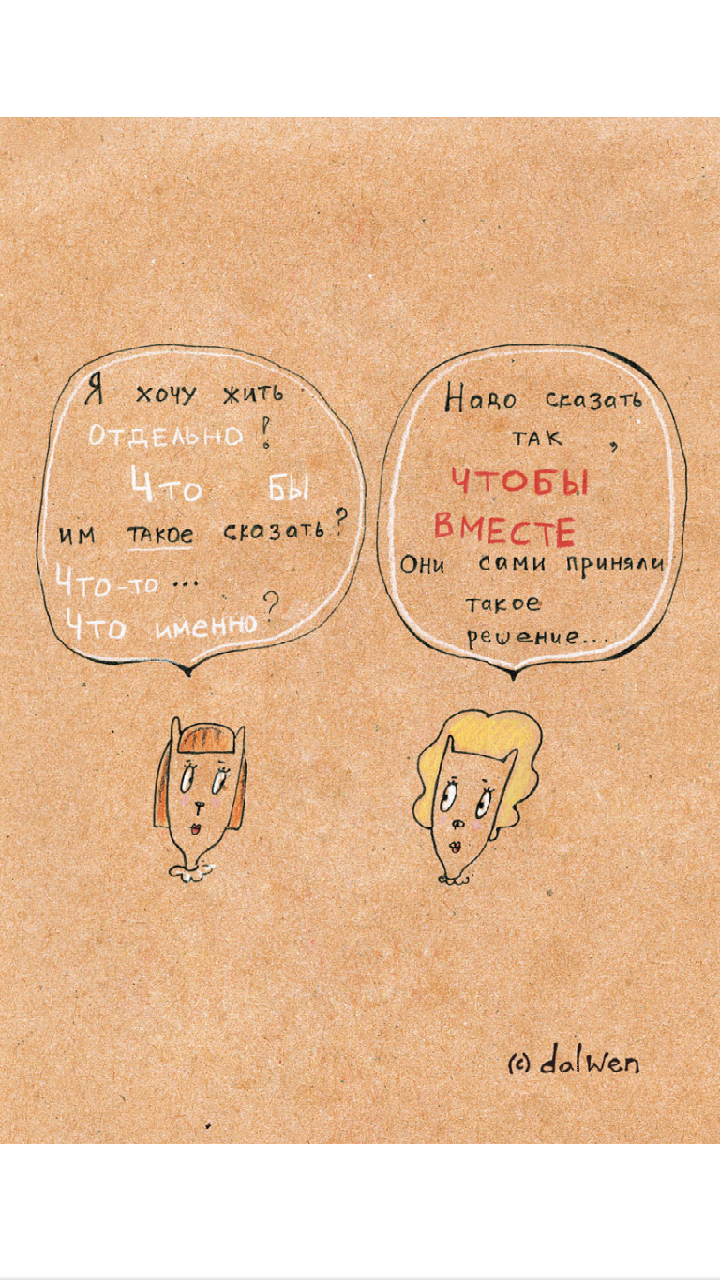 Я хочу жить
отдельно!
Что бы
им такое сказать?
Что-то...
Что именно?
Надо сказать
так,
чтобы
вместе
Они сами приняли
такое
решение...
(c) dalwen